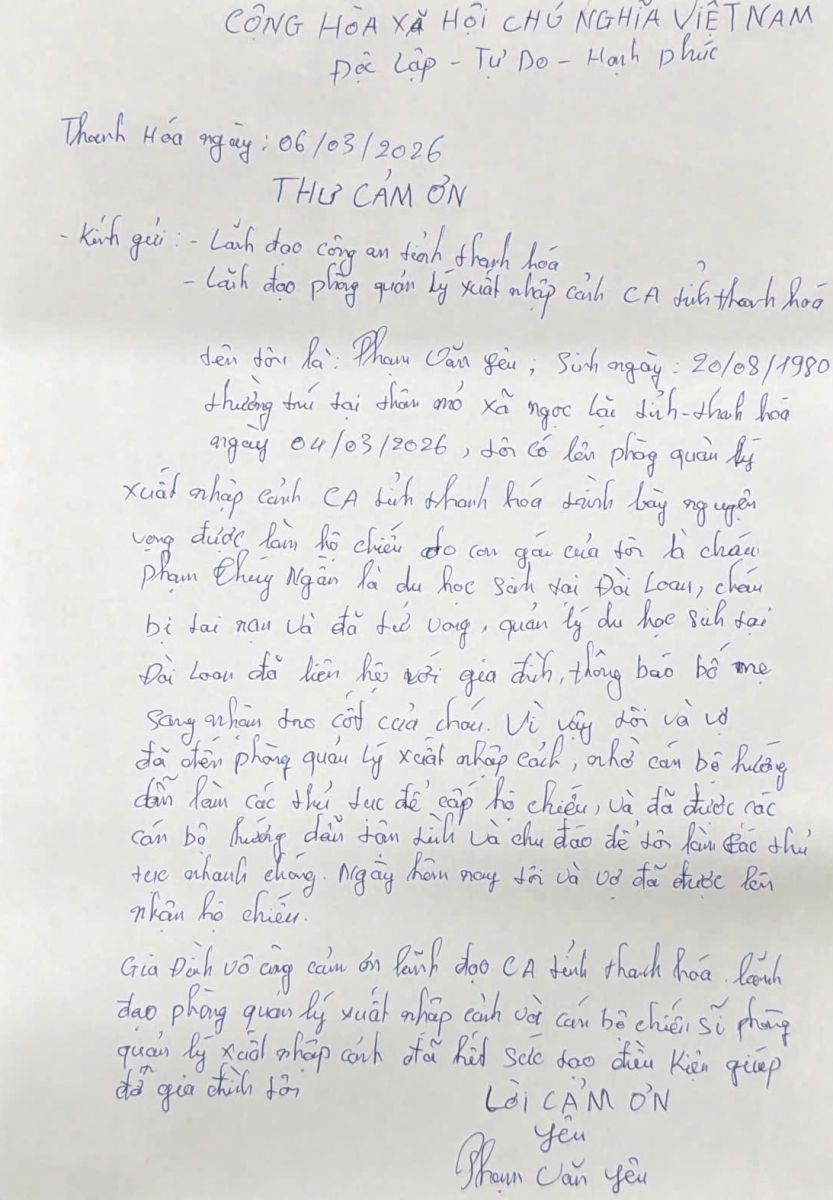 CỘNG HÒA XÃ HỘI CHỦ NGHĨA VIỆT NAM
Độc Lập - Tự Do - Hạnh phúc
Thanh Hóa ngày: 06/03/2026
THƯ CẢM ƠN
- Kính gửi: - Lãnh đạo công an tỉnh thanh hóa
- Lãnh đạo phòng quản lý xuất nhập cảnh CA tỉnh thanh hoá
tên tôi là: Phạm Văn Yêu; Sinh ngày: 20/08/1980
thường trú tại thôn mó xã ngọc lặc tỉnh-thanh hoá
ngày 04/03/2026, tôi có lên phòng quản lý
xuất nhập cảnh CA tỉnh thanh hóa trình bày nguyện
vọng được làm hộ chiếu do con gái của tôi là cháu
Phạm Thúy Ngân là du học sinh tại Đài Loan, cháu
bị tai nạn và đã tử vong, quản lý du học sinh tại
Đài Loan đã liên hệ với gia đình, thông báo bố mẹ
sang nhận tro cốt của cháu. Vì vậy tôi và vợ
đã đến phòng quản lý xuất nhập cách, nhờ cán bộ hướng
dẫn làm các thủ tục để cấp hộ chiếu, và đã được các
cán bộ hướng dẫn tận tình và chu đáo để tôi làm các thủ
tục nhanh chóng. Ngày hôm nay tôi và vợ đã được lên
nhận hộ chiếu.
Gia Đình vô cùng cảm ơn lãnh đạo CA tỉnh thanh hóa. lãnh
đạo phòng quản lý xuất nhập cảnh và cán bộ chiến sĩ phòng
quản lý xuất nhập cảnh đã hết sức tạo điều kiện giúp
đỡ gia đình tôi
LỜI CẢM ƠN
Yêu
Phạm Văn Yêu